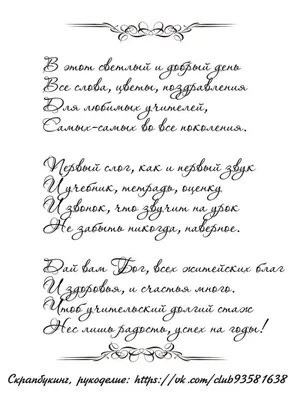 В этот светлый и добрый день
Все слова, цветы, поздравления
Для любимых учителей,
Самых-самых во все поколения.
Первый слог, как и первый звук
И учебник, тетрадь, оценку
И звонок, что звучит на урок
Не забыть никогда, наверное.
Дай вам Бог, всех житейских благ
И здоровья, и счастья много.
Чтоб учительский долгий стаж
Нес лишь радость, успех на годы!
Скрапбукинг, рукоделие: https://vk.com/club93581638